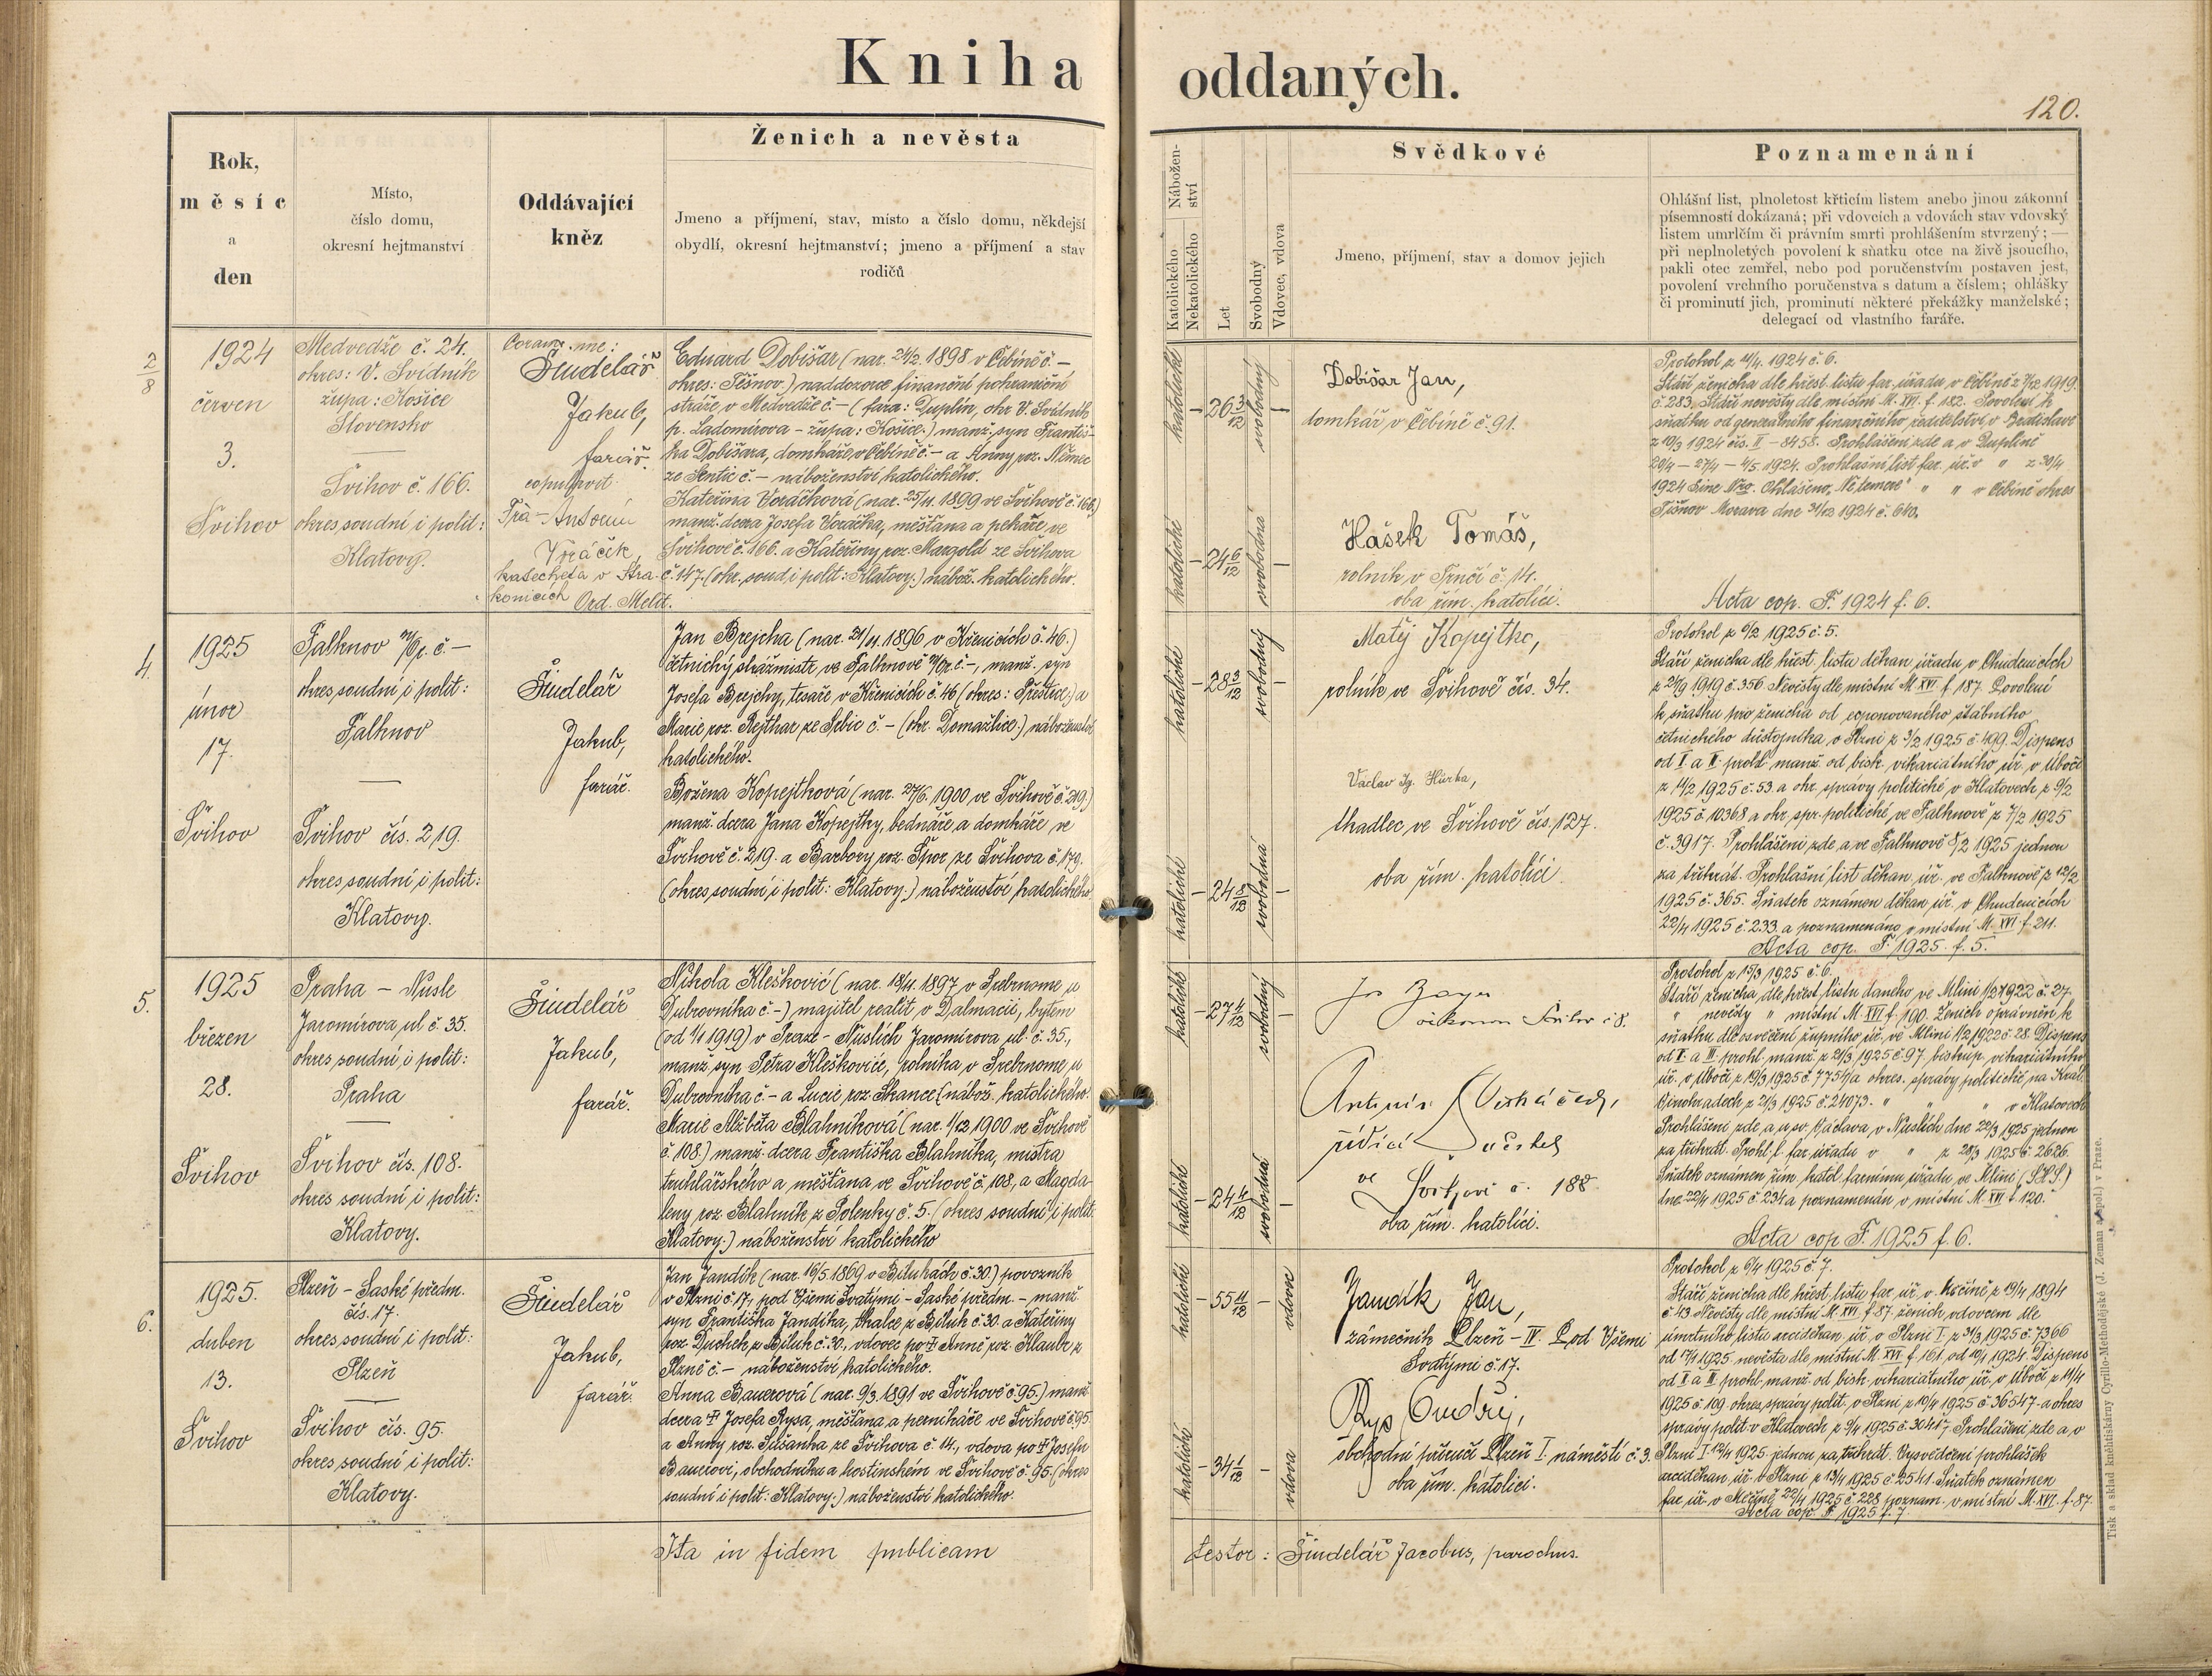 Kniha oddaných.
120.
Rok,
měsíc
a
den
Místo,
číslo domu,
okresní hejtmanství
Oddávající
kněz
Ženich a nevěsta
Jmeno a příjmení, stav, místo a číslo domu, někdejší
obydlí, okresní hejtmanství; jmeno a příjmení a stav
rodičů
Nábožen-
ství
Katolického
Nekatolického
Let
Svobodný
Vdovec, vdova
Svědkové
Jmeno, příjmení, stav a domov jejich
Poznamenání
Ohlášní list, plnoletost křticím listem anebo jinou zákonní
písemností dokázaná; při vdovcích a vdovách stav vdovský
listem umrlčím či právním smrti prohlášením stvrzený; —
při neplnoletých povolení k sňatku otce na živě jsoucího,
pakli otec zemřel, nebo pod poručenstvím postaven jest,
povolení vrchního poručenstva s datum a číslem; ohlášky
či prominutí jich, prominutí některé překážky manželské;
delegací od vlastního faráře.
2/8
1924
červen
3.
Švihov
Medvedže č. 24.
okres: V. Svidník
župa: Košice
Slovensko
Švihov č. 166.
okres soudní i polit:
Klatovy.
Coram me:
Šindelář
Jakub,
farář.
copulavit
Antonín
katecheta v Stra-
konicích Ord. Melit.
Eduard Dobišar (nar. 24/2 1898 v Čebíně č –
okres: Tišnov.) naddozorce finanční pohraniční
stráže v Medvedže č. – (fara: Duplín, okr. V. Svidník
p. Ladomirova – župa: Košice.) manž. syn Františ-
ka Dobišara, domkáře v Čebíně č – a Anny roz. Němec
ze Sentic č. – náboženství katolického.
Kateřina Voráčková (nar. 25/11 1899 ve Švihově č. 166.)
manž. dcera Josefa Voráčka, měšťana a pekaře ve
Švihově č. 166. a Kateřiny roz. Margold ze Švihova
č. 147. (okr. soud. i polit: Klatovy.) nábož. katolického.
katolické – 26 3/12 svobodný –
katolické – 24 6/12 svobodná –
Dobišar Jan,
domkář v Čebíně č. 91.
Hašek Tomáš,
rolník v Trnčí č. 14.
oba řím. katolíci.
Protokol z 21/4. 1924 č. 6.
č. 283. Stáří nevěsty dle místní M. XVI. f. 182. Povolení k
sňatku od generálního finančního ředitelství v Bratislavě
z 10/3 1924 čís. II – 8458. Prohlášení zde a v Duplíně
20/4 – 27/4 – 4/5. 1924. Prohlašní list far. úř. v " z 30/4
1924 Sine Nro. Ohlášeno „Ne temere" " " v Čebíně okres
Tišnov Morava dne 31/12 1924 č. 640.
Acta cop. F. 1924 f. 6.
4.
1925
únor
17.
Švihov
Falknov n/O. č. –
okres soudní i polit:
Falknov
Švihov čís. 219.
okres soudní i polit:
Klatovy.
Šindelář
Jakub,
farář.
Jan Brejcha (nar. 21/11 1896 v Křenicích č. 46.)
četnický strážmistr ve Falknově n/O. č –, manž. syn
Josefa Brejchy, tesaře v Křenicích č. 46 (okres: Přeštice;) a
Marie roz. Rejthar ze Srbic č. – (okr. Domažlice.) náboženství
katolického.
Božena Kopejtková (nar. 27/6. 1900 ve Švihově č. 219.)
manž. dcera Jana Kopejtky, bednáře a domkáře ve
Švihově č. 219. a Barbory roz. Špor ze Švihova č. 179.
(okres soudní i polit: Klatovy.) náboženství katolického.
katolické – 28 3/12 svobodný –
katolické – 24 8/12 svobodná –
Matěj Kopejtko,
rolník ve Švihově čís. 34.
Václav Ig. Hůrka,
tkadlec ve Švihově čís. 127.
oba řím. katolíci.
Protokol z 6/2 1925 č. 5.
Stáří ženicha dle křest. listu děkan. úřadu v Chudenicích
z 24/9 1919 č. 356. Nevěsty dle místní M. XVI. f. 187. Povolení
k sňatku pro ženicha od exponovaného štábního
četnického důstojníka v Plzni z 3/2 1925 č. 499. Dispens
od I. a II. prohl. manž. od bisk. vikariátního úř. v Úbočí
z 14/2 1925 č. 53. a okr. správy politické v Klatovech z 9/2
1925 č. 10368 a okr. spr. politické ve Falknově z 7/2 1925
č. 3917. Prohlášení zde a ve Falknově 8/2 1925 jednou
za třikrát. Prohlašní list děkan. úř. ve Falknově z 12/2
1925 č. 365. Sňatek oznámen děkan. úř. v Chudenicích
22/4 1925 č. 233. a poznamenáno v místní M. XVI. f. 211.
Acta cop. F. 1925. f. 5.
5.
1925
březen
28.
Švihov
Praha – Nusle
Jaromírova ul. č. 35.
okres soudní i polit:
Praha
Švihov čís. 108.
okres soudní i polit:
Klatovy.
Šindelář
Jakub,
farář.
Nikola Klešković (nar. 18/11. 1897 v Srebrnome u
Dubrovníka č. –) majitel realit v Dalmacii, bytem
(od 1/1 1919) v Praze – Nuslích Jaromírova ul. č. 35.,
manž. syn Petra Kleškoviće, rolníka v Srebrnome u
Dubrovníka č. – a Lucie roz. Skance (nábož. katolického.
Marie Alžběta Blahníková (nar. 1/12 1900 ve Švihově
č. 108.) manž. dcera Františka Blahníka, mistra
truhlářského a měšťana ve Švihově č. 108., a Magda-
leny roz. Blahník z Polenky č. 5. (okres soudní i polit:
Klatovy.) náboženství katolického
katolické – 27 4/12 svobodný –
katolické – 24 4/12 svobodná –
Švihov č 8.
Antonín
řídící učitel
ve Švihově č. 188.
oba řím. katolíci.
Protokol z 19/3 1925 č. 6.
Stáří ženicha dle křest. listu daného ve Mlini 1922 č. 27.
" nevěsty " místní M. XVI. f. 190. Ženich oprávněn k
sňatku dle osvěčení župního úř. ve Mlini 1/2 1922 č. 28. Dispens
od II. a III. prohl. manž. z 21/3 1925 č. 97. biskup. vikariátního
úř. v Úbočí z 19/3 1925 č. 7754/a okres. správy politické na Král.
Vinohradech z 21/3 1925 č. 24073. " " " v Klatovech
Prohlášení zde a u sv. Václava v Nuslích dne 22/3 1925 jednou
za třikrát. Prohl. l. far. úřadu v " z 28/3 1925 č. 2626.
Sňatek oznámen řím. katol. farnímu úřadu ve Mlini (S.H.S.)
dne 22/4 1925 č. 234 a poznamenán v místní M. XVI. f. 120.
Acta cop. F. 1925 f. 6.
6.
1925.
duben
13.
Švihov
Plzeň – Saské předm.
čís. 17.
okres soudní i polit:
Plzeň
Švihov čís. 95.
okres soudní i polit:
Klatovy.
Šindelář
Jakub,
farář.
Jan Jandík (nar. 16/5. 1869 v Bílukách č. 30.) povozník
v Plzni č. 17., pod Všemi Svatými – Saské předm. – manž.
syn Františka Jandíka, tkalce z Bíluk č. 30. a Kateřiny
roz. Duchek z Bíluk č. 30., vdovec po † Anně roz. Klaubr z
Plzně č. – náboženství katolického.
Anna Bauerová (nar. 9/3. 1891 ve Švihově č. 95.) manž.
dcera † Josefa Rysa, měšťana a perníkáře ve Švihově č. 95.
a Anny roz. Sušanka ze Švihova č. 14., vdova po † Josefu
Bauerovi, obchodníku a hostinském ve Švihově č. 95. (okres
soudní i polit: Klatovy.) náboženství katolického.
katolické – 55 11/12 – vdovec
katolické – 34 1/12 – vdova
Jandík Jan,
zámečník Plzeň – IV. Pod Všemi
Svatými č. 17.
Rys Ondřej,
obchodní příručí Plzeň I. náměstí č. 3.
oba řím. katolíci.
Protokol z 6/4 1925 č. 7.
Stáří ženicha dle křest. listu far. úř. v Měčíně z 19/4 1894
č. 43. Nevěsty dle místní M. XVI. f. 87. ženich vdovcem dle
úmrtního listu arciděkan. úř. v Plzni I. z 31/3 1925 č. 7366
od 17/1 1925. nevěsta dle místní M. XVI. f. 161. od 10/1 1924. Dispens
od I. a II. prohl. manž. od bisk. vikariátního úř. v Úbočí z 11/4
1925 č. 109. okres. správy polit. v Plzni z 10/4 1925 č. 36547. a okres
správy polit. v Klatovech z 9/4 1925 č. 30417. Prohlášení zde a v
Plzni I. 12/4 1925. jednou za třikrát. Vysvědčení prohlášek
arciděkan. úř. v Plzni z 13/4 1925 č. 2541. Sňatek oznámen
far. úř. v Měčíně 22/4 1925 č. 228 poznam. v místní M. XVI. f. 87.
Acta cop. F. 1925 f. 7.
Ita in fidem publicam testor: Šindelář Jacobus, parochus.
Tisk a sklad knihtiskárny Cyrillo-Methodějské (J. Zeman a spol.) v Praze.